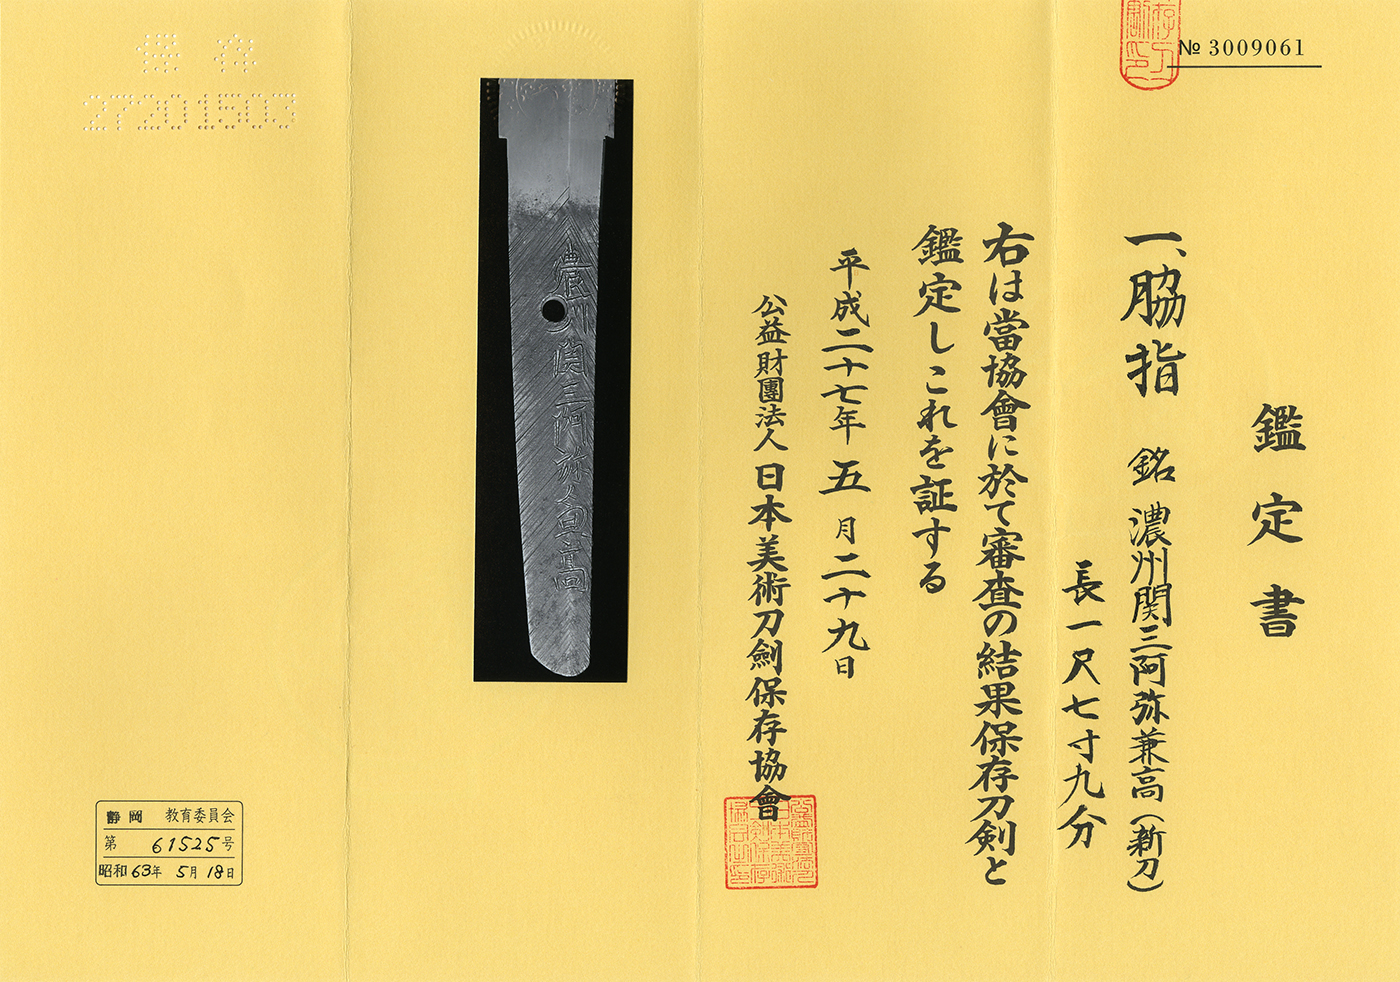 № 3009061
鑑定書
一、脇指 銘 濃州関三阿弥兼高(新刀)
長一尺七寸九分
右は當協會に於て審査の結果保存刀剣と
鑑定しこれを証する
平成二十七年 五月二十九日
公益財團法人日本美術刀劍保存協會
濃州関三阿弥兼高
保存
27201503
静岡 教育委員会
第 61525号
昭和63年 5月 18日